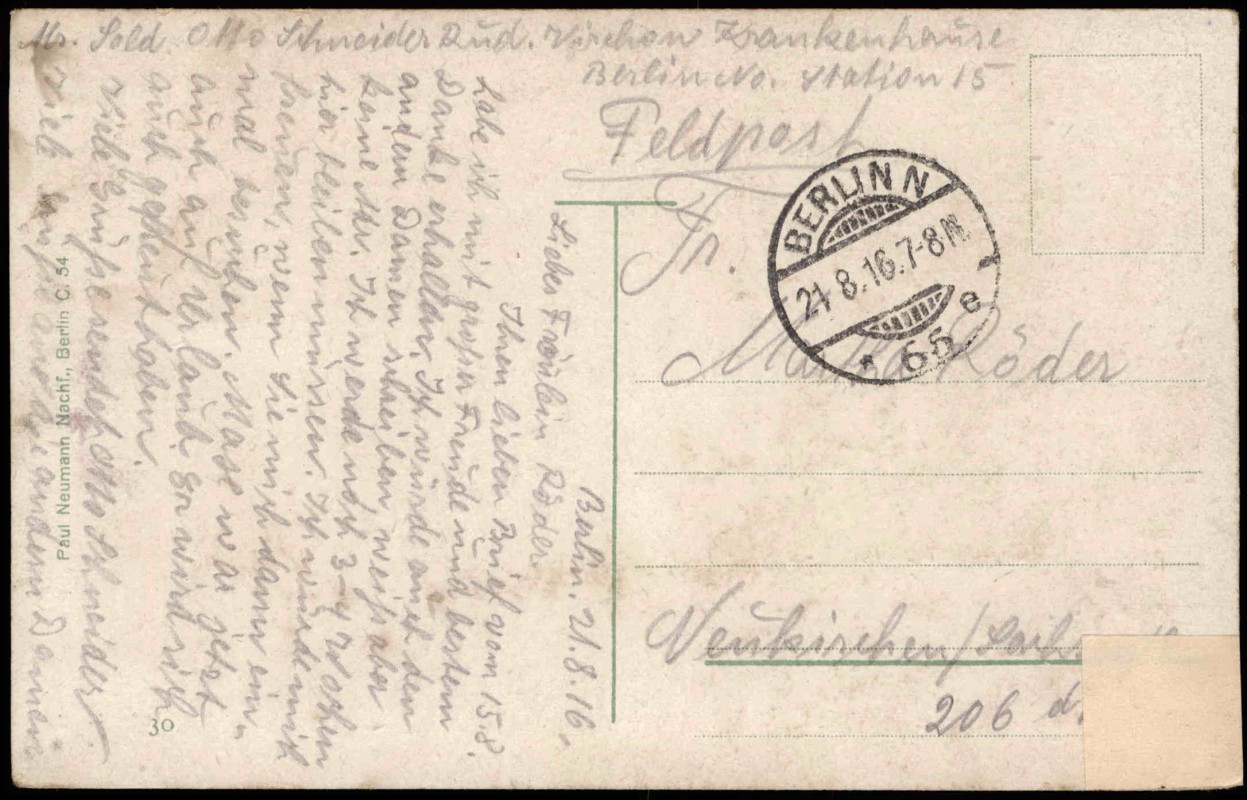 Sold. Otto Schneider Rud. Virchow Krankenhause
Berlin No. Station 15
Feldpost
Fr.
Röder
Neukirchen/
206 d.
BERLIN N
21.8.16.7-8N.
* 65 e
Berlin. 21.8.16.
Liebes Fräulein Röder
Ihnen lieben Brief vom 15.8.
habe ich mit großer Freude und bestem
Danke erhalten. Ich würde auch den
andern Damen schreiben weiß aber
keine Adr. Ich werde noch 3-4 Wochen
hier bleiben müssen. Ich würde mich
freuen, wenn Sie mich dann ein
mal besuchen. war jetzt
auch auf Urlaub. Er wird sich
auch gefreut haben.
Viele Grüße sendet Otto Schneider
Viele Grüße an die andern Damen
Paul Neumann Nachf., Berlin C. 54
30